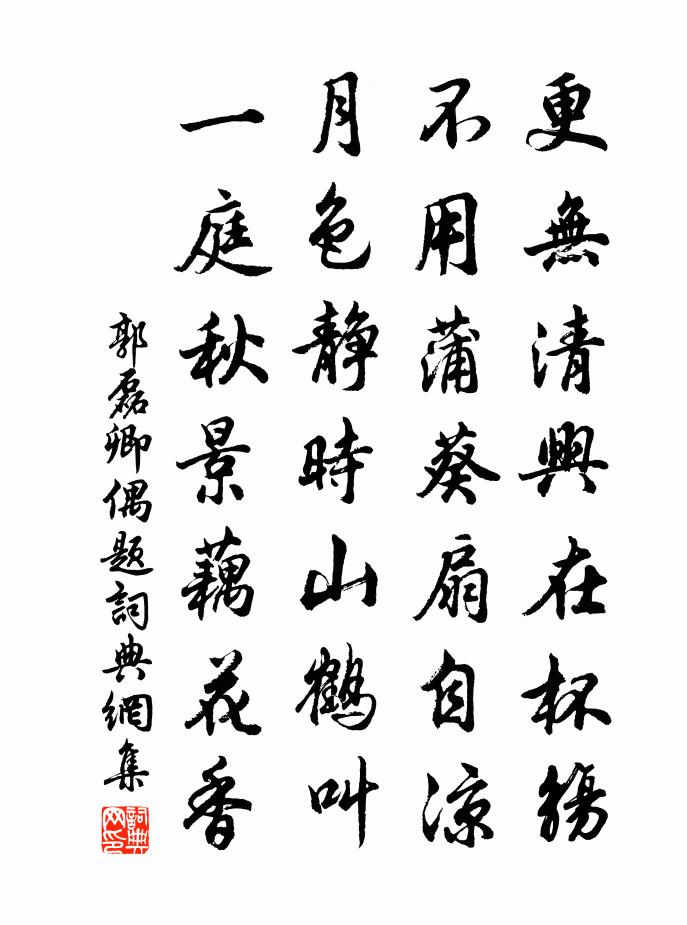 更無清興在杯觴
不用蒲葵扇自涼
月色静時山鶴叫
一庭秋景藕花香
郭磊卿偶題詞典網集
詞典网印